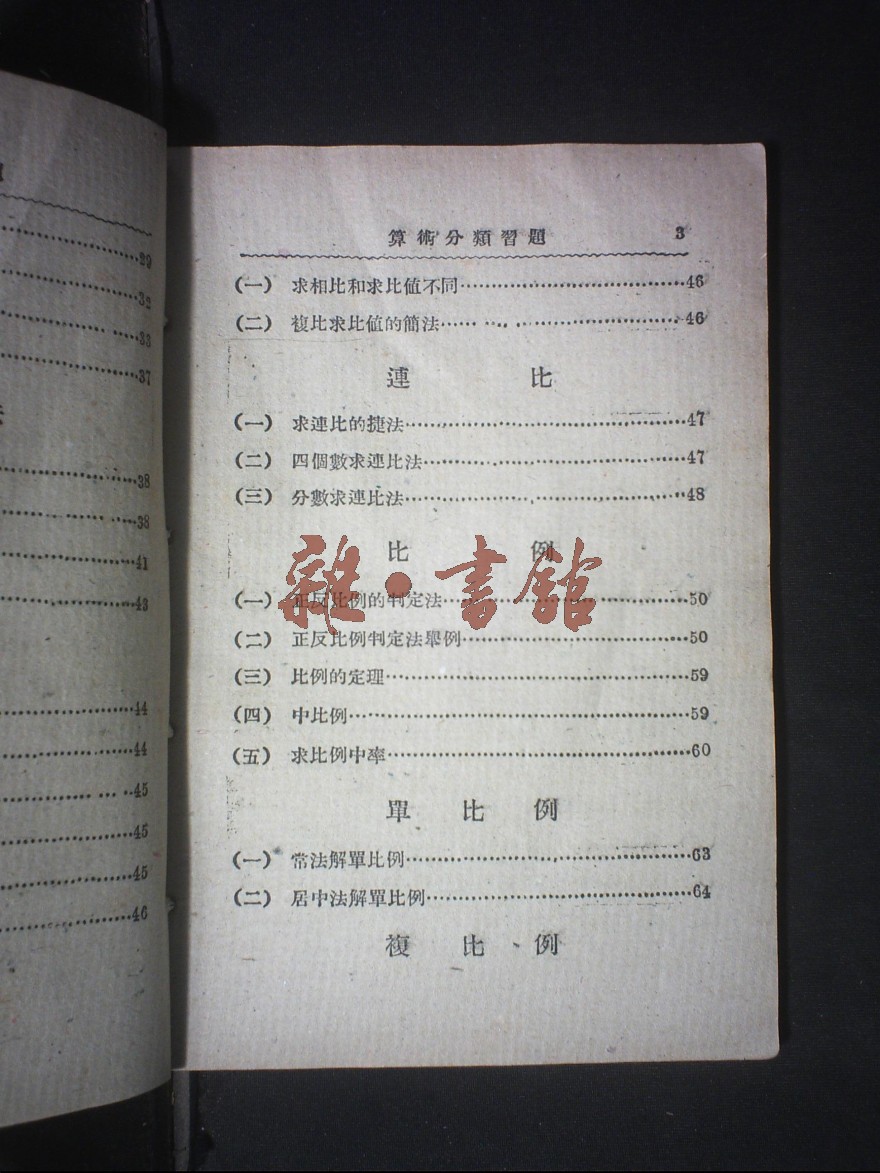 29
32
33
37
38
38
41
43
44
44
45
45
45
46
算術分類習題 3
(一) 求相比和求比值不同……46
(二) 複比求比值的簡法……46
連比
(一) 求連比的捷法……47
(二) 四個數求連比法……47
(三) 分數求連比法……48
比例
(一) 正反比例的判定法……50
(二) 正反比例判定法舉例……50
(三) 比例的定理……59
(四) 中比例……59
(五) 求比例中率……60
單比例
(一) 常法解單比例……63
(二) 居中法解單比例……64
複比例
雜•書館